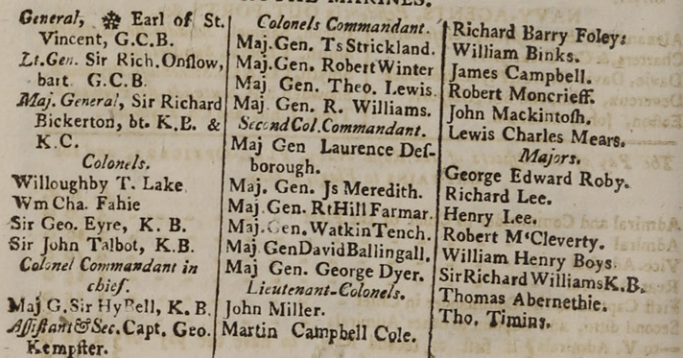 General, Earl of St.
Vincent, G.C.B.
Lt.Gen. Sir Rich.Onſlow,
bart. G.C.B.
Maj. General, Sir Richard
Bickerton, bt. K.B. &
K.C.
Colonels.
Willoughby T. Lake
Wm Cha. Fahie
Sir Geo. Eyre, K. B.
Sir John Talbot, K.B.
Colonel Commandant in
chief.
Maj G.Sir Hy Bell, K. B.
Aſſiſtant&Sec.Capt. Geo.
Kempſter.
Colonels Commandant.
Maj.Gen. Ts Strickland.
Maj.Gen. Robert Winter
Maj Gen. Theo. Lewis.
Maj Gen. R. Williams.
Second Col.Commandant.
Maj Gen Laurence Deſ-
borough.
Maj. Gen. Js Meredith.
Maj.Gen. Rt Hill Farmar.
Maj.Gen. Watkin Tench.
Maj.Gen David Ballingall.
Maj Gen. George Dyer.
Lieutenant-Colonels.
John Miller.
Martin Campbell Cole.
Richard Barry Foley.
William Binks.
James Campbell.
Robert Moncrieff.
John Mackintoſh.
Lewis Charles Mears.
Majors.
George Edward Roby.
Richard Lee.
Henry Lee.
Robert M'Cleverty.
William Henry Boys
Sir Richard Williams K.B.
Thomas Abernethie.
Tho. Timins.